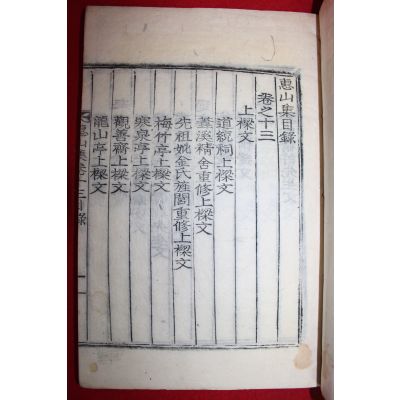 惠山集目錄
卷之十三
上樑文
道統祠上樑文
葛溪精舍重修上樑文
先祖妣金氏旌閭重修上樑文
梅竹亭上樑文
寒泉亭上樑文
觀善齋上樑文
龍山亭上樑文
惠山集卷十三目錄
一